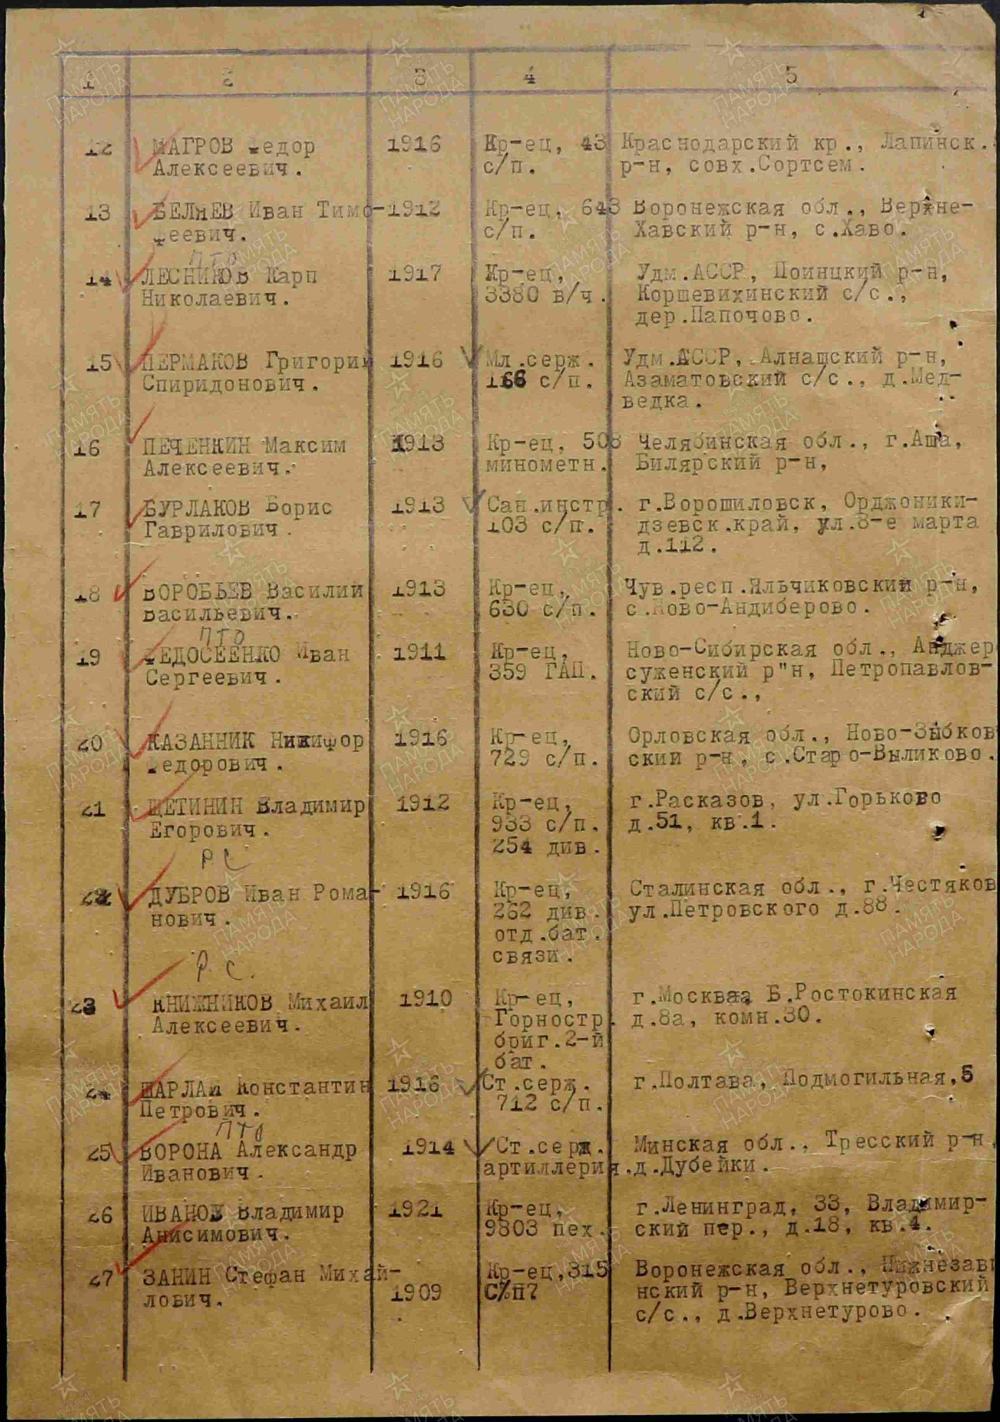 1 2 3 4 5
12 МАГРОВ Федор 1916 Кр-ец, 43 Краснодарский кр., Лапинск.
Алексеевич. с/п. р-н, совх.Сортсем.
13 БЕЛЯЕВ Иван Тимо-1912 Кр-ец, 643 Воронежская обл., Верхне-
феевич. с/п. Хавский р-н, с.Хаво.
ПТО
14 ЛЕСНИКОВ Карп 1917 Кр-ец, Удм.АССР, Поинцкий р-н,
Николаевич. 3380 в/ч. Коршевихинский с/с.,
дер.Папочово.
15 ПЕРМАКОВ Григорий 1916 Мл.серж. Удм.АССР, Алнашский р-н,
Спиридонович. 166 с/п. Азаматовский с/с., д.Мед-
ведка.
16 ПЕЧЕНКИН Максим 1913 Кр-ец, 508 Челябинская обл., г.Аша,
Алексеевич. минометн. Билярский р-н,
17 БУРЛАКОВ Борис 1913 Сан.инстр. г.Ворошиловск, Орджоники-
Гаврилович. 103 с/п. дзевск.край, ул.8-е марта
д.112.
18 ВОРОБЬЕВ Василий 1913 Кр-ец, Чув.респ.Яльчиковский р-н,
Васильевич. 630 с/п. с.Ново-Андиберово.
ПТО
19 ФЕДОСЕЕНКО Иван 1911 Кр-ец, Ново-Сибирская обл., Анджер
Сергеевич. 359 ГАП. суженский р"н, Петропавлов-
ский с/с.,
20 КАЗАННИК Никифор 1916 Кр-ец, Орловская обл., Ново-Зыбков
Федорович. 729 с/п. ский р-н, с.Старо-Выликово.
21 ЩЕТИНИН Владимир 1912 Кр-ец, г.Расказов, ул.Горьково
Егорович. 933 с/п. д.51, кв.1.
254 див.
РС
22 ДУБРОВ Иван Рома- 1916 Кр-ец, Сталинская обл., г.Честяков
нович. 262 див. ул.Петровского д.88.
отд.бат.
связи.
Р.С.
23 КНИЖНИКОВ Михаил 1910 Кр-ец, г.Москваа Б.Ростокинская
Алексеевич. Горностр. д.8а, комн.30.
бриг.2-й
бат.
24 ШАРЛАЙ Константин 1916 Ст.серж. г.Полтава, Подмогильная,5
Петрович. 712 с/п.
ПТО
25 ВОРОНА Александр 1914 Ст.серж. Минская обл., Тресский р-н,
Иванович. артиллерия.д.Дубейки.
26 ИВАНОВ Владимир 1921 Кр-ец, г.Ленинград, 33, Владимир-
Анисимович. 9803 пех. ский пер., д.18, кв.4.
27 ЗАНИН Стефан Михай- Кр-ец,315 Воронежская обл., Нижнезави
лович. 1909 С/п? нский р-н, Верхнетуровский
с/с., д.Верхнетурово.